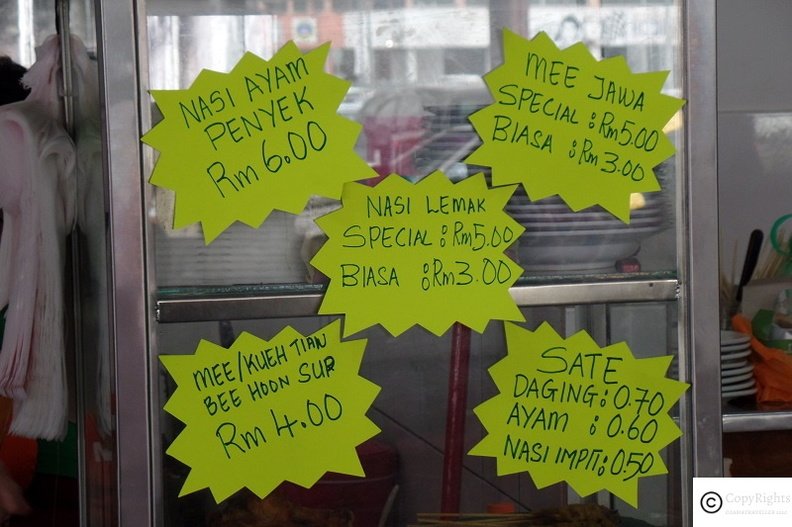 NASI AYAM
PENYEK
Rm 6.00
MEE JAWA
SPECIAL : Rm5.00
BIASA : Rm 3.00
NASI LEMAK
SPECIAL : Rm5.00
BIASA : Rm3.00
MEE/KUEH TIAN
BEE HOON SUP
Rm 4.00
SATE
DAGING : 0.70
AYAM : 0.60
NASI IMPIT : 0.50
© CopyRights